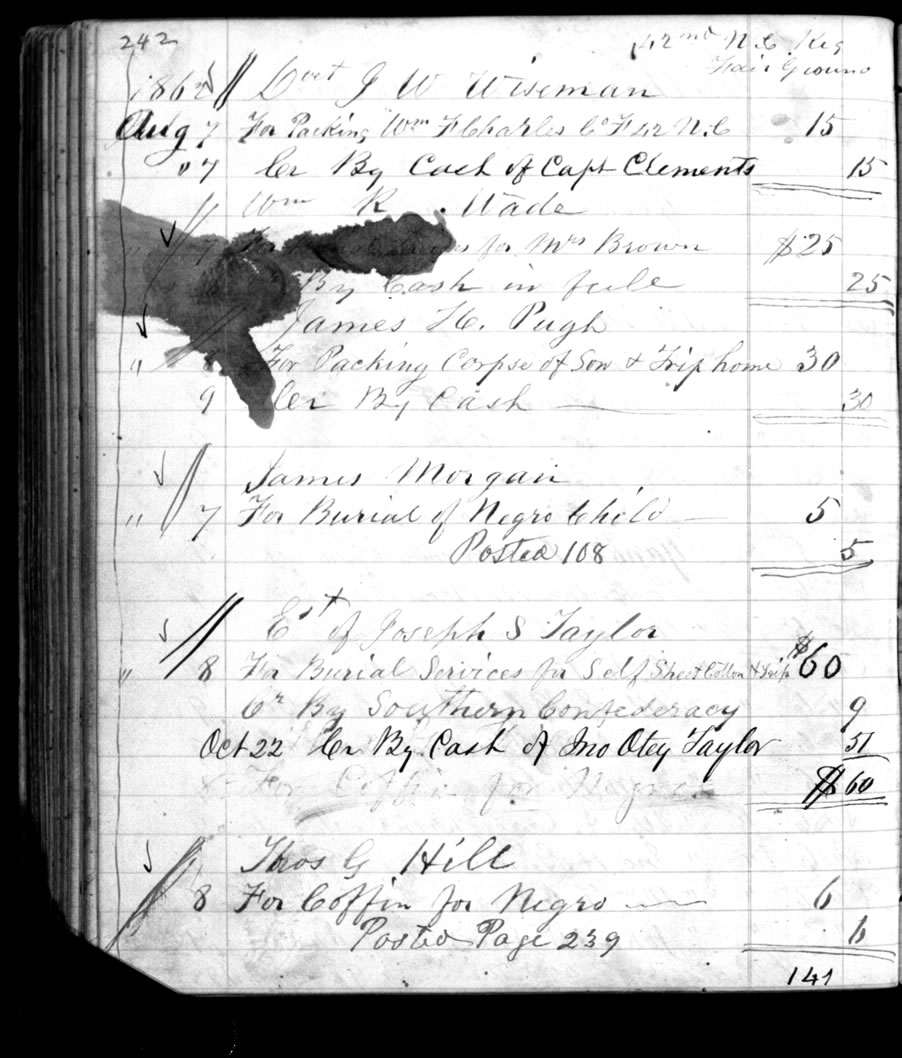 242
42nd N.C. Reg
Fair Ground
1862 J W Wiseman
Aug 7 For Packing Wm F Charles Co F 42 N.C 15
" 7 Cr By Cash of Capt Clements 15
Wm R. Wade
" 7 for Mrs Brown $25
By Cash in full 25
James H. Pugh
" For Packing Corpse of Son & Trip home 30
9 Cr By Cash 30
James Morgan
" 7 For Burial of Negro Child 5
Posted 108 5
Est of Joseph S Taylor
" 8 For Burial Services for Self Sheet Cotton & Trip $60
Cr By Southern Confederacy 9
Oct 22 Cr By Cash of Jno Otey Taylor 51
8 For Coffin for Negro $60
Thos G Hill
8 For Coffin for Negro 6
Posted Page 239 6
141